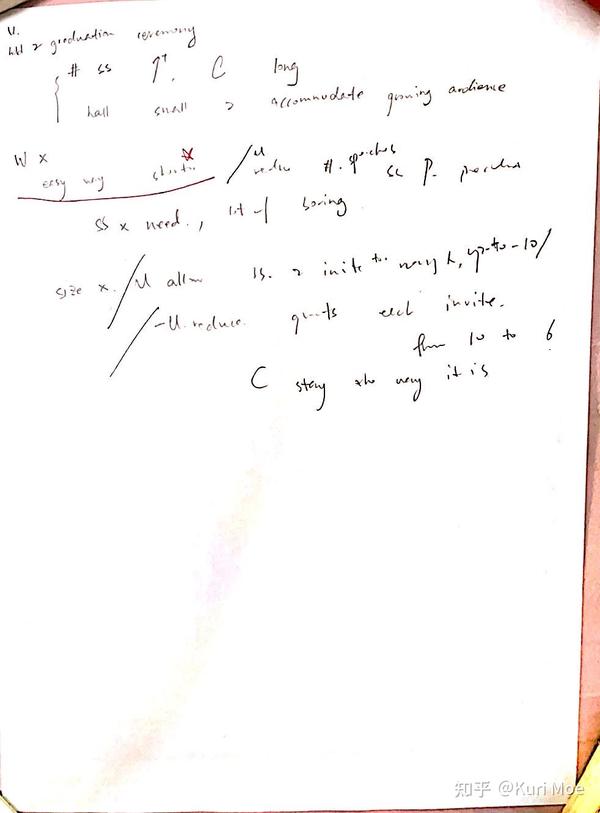 U.
2 graduation ceremony
# ss ↑↑. C long
hall small 2 accommodate growing audience
W x
easy way shorten / U reduce #. speeches
ss P.
ss x need., lot of boring
size x. / U allow ss. 2 invite too many k, up to -10/
/ -U. reduce. guests each invite.
from 10 to 6
C stay the way it is
知乎 @Kuri Moe